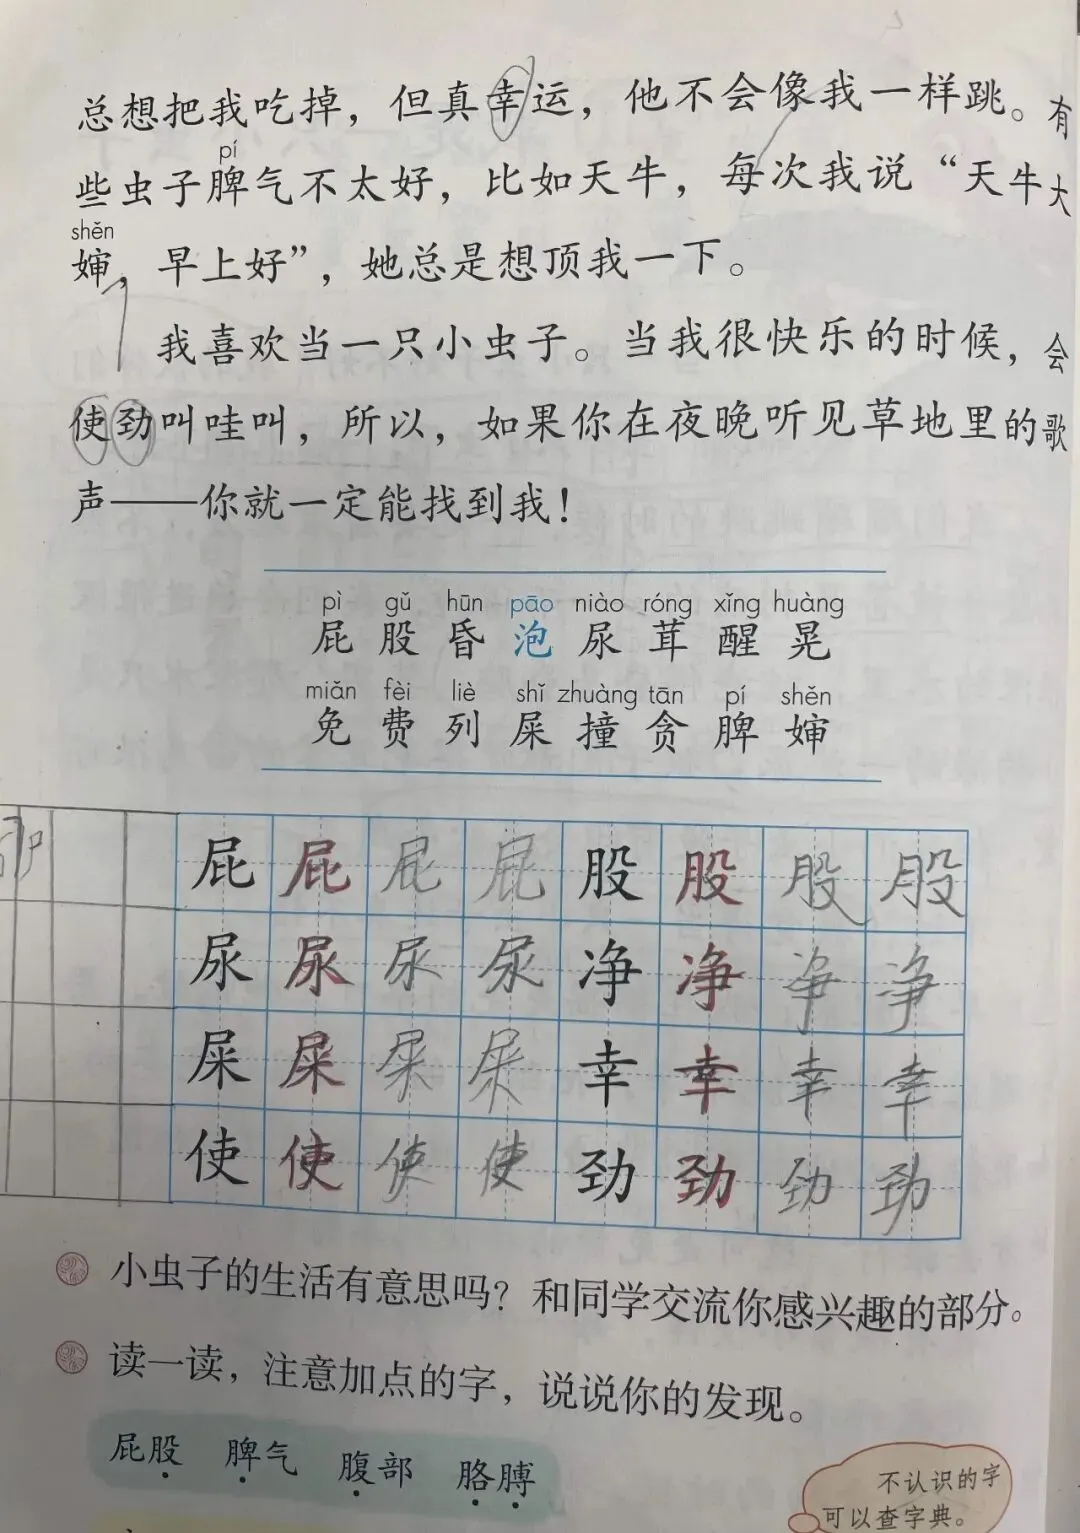 总想把我吃掉，但真幸运，他不会像我一样跳。有
pí
些虫子脾气不太好，比如天牛，每次我说“天牛大
shěn
婶，早上好”，她总是想顶我一下。
我喜欢当一只小虫子。当我很快乐的时候，会
使劲叫哇叫，所以，如果你在夜晚听见草地里的歌
声——你就一定能找到我！
pì gǔ hūn pāo niào róng xǐng huàng
屁 股 昏 泡 尿 茸 醒 晃
miǎn fèi liè shǐ zhuàng tān pí shěn
免 费 列 屎 撞 贪 脾 婶
屁 屁 屁 屁 股 股 股 股
尿 尿 尿 尿 净 净 净 净
屎 屎 屎 屎 幸 幸 幸 幸
使 使 使 使 劲 劲 劲 劲
小虫子的生活有意思吗？和同学交流你感兴趣的部分。
读一读，注意加点的字，说说你的发现。
屁股 脾气 腹部 胳膊
不认识的字
可以查字典。